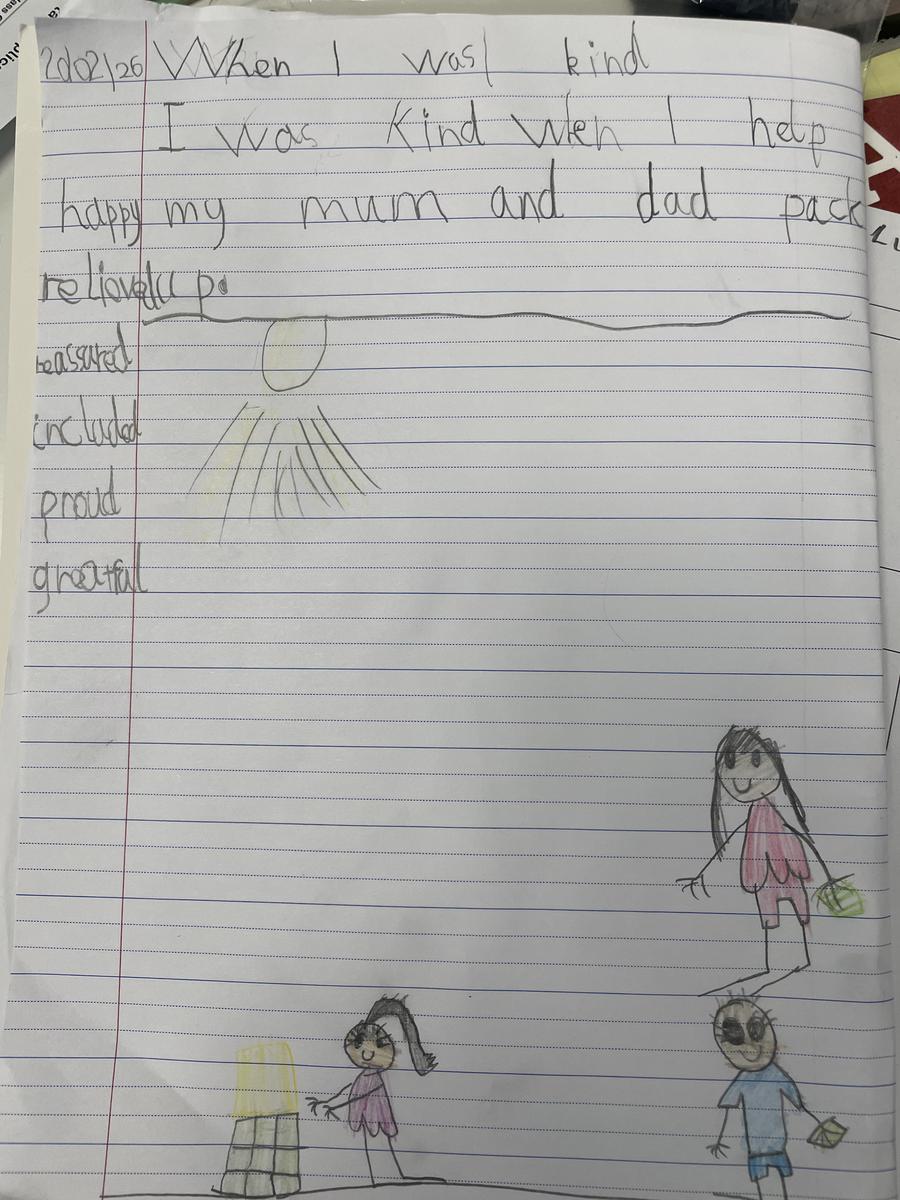 2d02/26 When I was kind
I was Kind When I help
happy my mum and dad pack
up.
reassured
included
proud
greatful